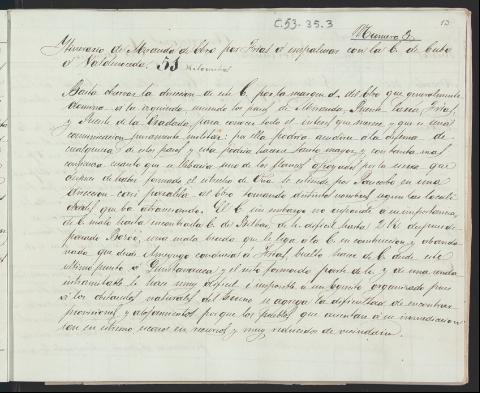 C.53-35.3
Numero 3.
13
Itinerario de Miranda de Ebro por Frias a empalmar con la C. de Cubo
a Valdenoceda. 55 kilometros
Basta observar la direccion de este C. por la margen d. del Ebro que generalmente
domina a la izquierda, uniendo los pasos de Miranda, Puente Larra, Frias,
y Puente de la Oradada, para conocer todo el interes que marca, y que es una
comunicacion puramente militar: por ella podria acudirse a la defensa de
cualquiera de estos pasos y esta podria hacerse tanto mayor, y con tanta mas
confianza cuanto que a Urbania uno de los flancos apoyados por la sierra que
despues de haber formado el estrecho de Oña se estiende por Pancorbo en una
direccion casi paralela al Ebro tomando distintos nombres segun las locali-
dades que ba atravesando. El C. sin embargo no responde a su importancia,
de C. malo hasta encontrar la C. de Bilbao, de la dificil hasta
pasado Bozoó, una mala brecha que le liga a la C. en construccion y abando-
nada que desde Ameyugo conducia a Frias, buelto a ser de C. desde este
ultimo punto a Quintanaseca y el resto formando parte de la y de una senda
intransitable le hace muy dificil e imposible a un Cuerpo organizado pues
a los obstaculos naturales del terreno se agrega la dificultad de encontrar
provisiones y alojamientos porque los pueblos que asientan a su inmediacion
son en estremo escasos en recursos y muy reducidos de vecindario.